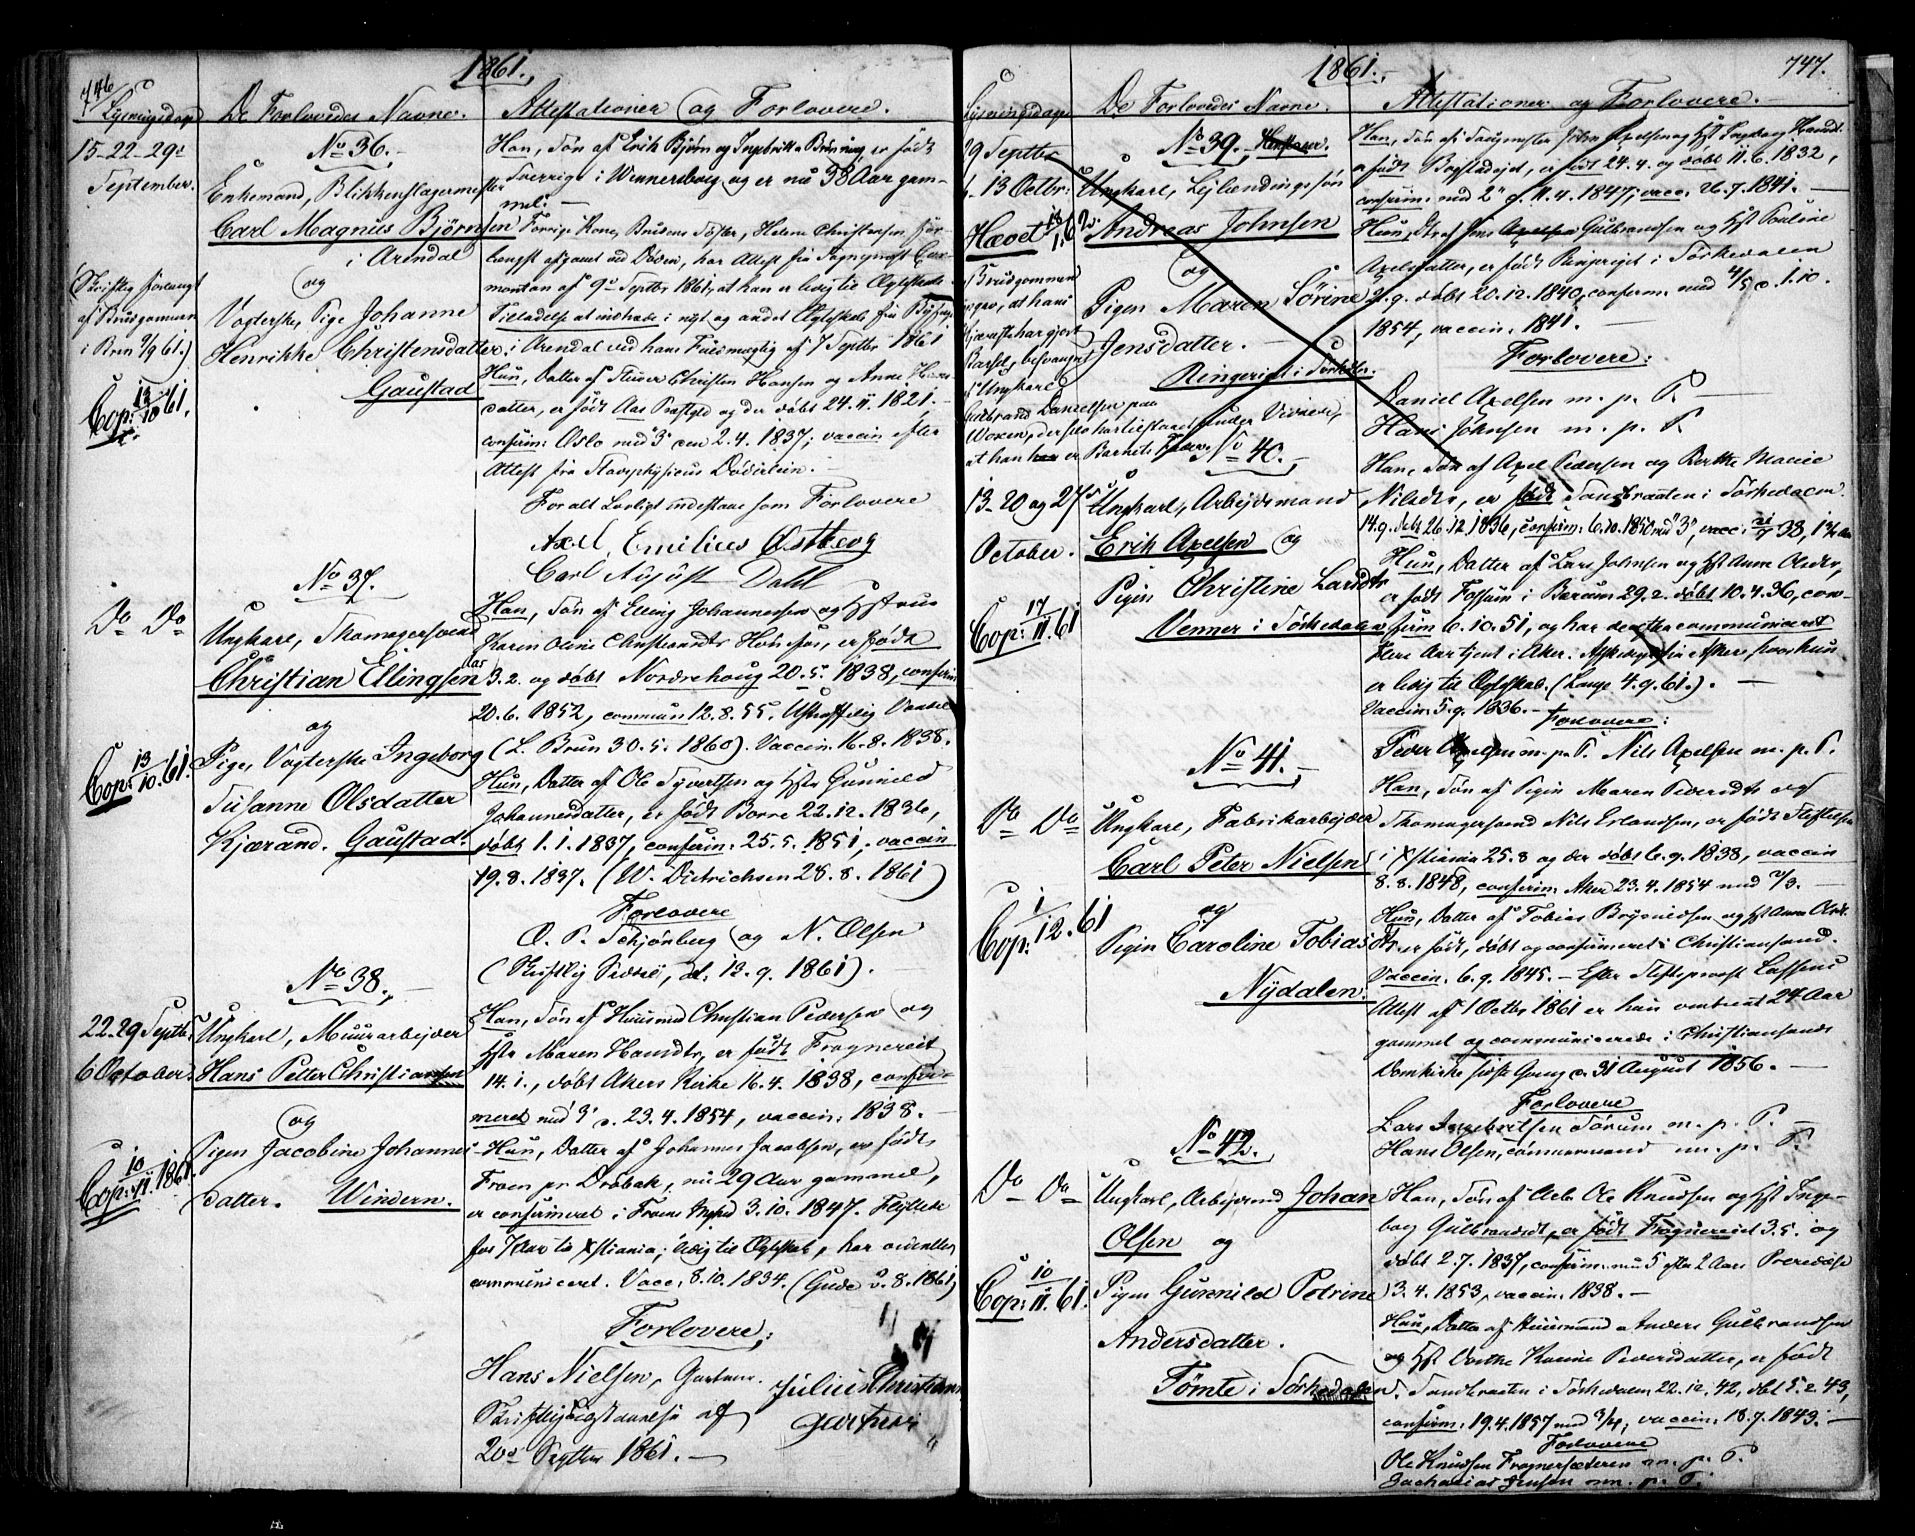 746
1861.
Lysningsdage
De Forlovedes Navne.
Attestationer og Forlovere.
15-22-29de
September.
No 36.
Enkemand, Blikkenslagermester
Carl Magnus Björnsen
i Arendal
og
Vogterske, Pige Johanne
Henrikke Christensdatter.
Gaustad
(Skriftlig forlangt
af Brudgommen
i Brev 9/9 61.)
Cop: 13/10 61.
Han, Søn af Erik Bjørn og Ingebrikta Brüning, er født
Sverrige i Wennersborg og er nu 38 Aar gam-
mel. —
Forrige Kone, Brudens Søster, Helene Christensen for
længst afgaaet ved Døden, har Attest fra Sognepræst
af 9de Septbr 1861, at han er ledig til Ægteskab
Tilladelse at indtræde i nyt og andet Ægteskab fra Byfoged
i Arendal ved hans Fuldmægtig af 7 Septbr 1861
Hun, Datter af Christen Hansen og Anne
datter, er født Aas Præstgd og der døbt 24.11.1821.
confirm: Oslo med 3 den 2.4.1837; vaccin efter
Attest fra
For alt Lovligt indestaae som Forlovere
Axel Emilius Østberg
Carl August Dahl
No 37.
Do Do
Ungkarl, Thomagersvend
Christian Ellingsen
og
Pige, Vogterske Ingeborg
Susanne Olsdatter
Kjærand. Gaustad.
Cop: 13/10. 61.
Han, Søn af Elling Johannesen og Hstru
Karen Oline Christiansdtr Hønefos, er født
3.2. og døbt Nordrehoug 20.5.1838, confirm
20.6.1852, commun 12.8.55. Ustraffelig Vandel
(L. Brun 30.5.1860). Vaccin. 16.8.1838.
Hun, Datter af Ole Syvertsen og Hstr Gunnild
Johannesdatter, er født Borre 22.12.1836,
døbt 1.1.1837, confirm: 25.5.1851, vaccin
19.8.1837. (W. Dietrichsen 28.8.1861)
Forlovere
O. P. Schjønberg og N. Olsen
(Skriftlig dt. 12.9.1861).
No 38.
22.29 Septbr.
6 October.
Ungkarl, Muurarbeider
Hans Petter Christiansen
og
Pigen Jacobine Johannes-
datter. Windern.
Cop: 10/11. 1861.
Han, Søn af Huusmd Christian Pedersen og
Hstr Maren Hansdtr, er født Frognereiet
14.1., døbt Akers Kirke 16.4.1838, confir-
meret med 3 d. 23.4.1854, vaccin: 1838.
Hun, Datter af Johannes Jacobsen, er født
Froen pr Drøbak, nu 29 Aar gammel,
er confirmeret i Froens 3.10.1847. Flyttede
for 7 Aar to Xstiania; ledig til Ægteskab, har
communiceret. Vacc. 8.10.1834. (Gude 2.8.1861)
Forlovere,
Hans Nielsen, Gartner. Julius Christians
gartner
Skriftlig af
20de Septbr 1861. —
1861.
747.
Lysningsdage
De Forlovedes Navne.
Attestationer og Forlovere.
29 Septbr
6. 13 Octbr:
No 39,
Ungkarl, Leilændingssøn
Andreas Johnsen
og
Pigen Maren Sörine
Jensdatter.
Ringeriget i Sørkedalen.
Hævet
Brudgommen
at hans
har gjort
Barsel, besvangret
af Ungkarl
Gulbrand Danielsen paa
at han er Barnets Fader.
Han, Søn af John Axelsen og Hst Ingeborg Hansdt.
er født Bogstadejet, er født 24.4. og døbt 11.6.1832,
confirm: med 2 d. 11.4.1847, vacc. 26.7.1841. —
Hun, Dtr af Jens Gulbrandsen og Hst Pauline
Axelsdatter, er født Ringeriget i Sørkedalen
21.9. døbt 20.12.1840, confirm. med 4/5 d. 1.10.
1854, vaccin: 1841. —
Forlovere:
Daniel Axelsen m. p. P.
Hans Johnsen m. p. P.
No 40.
13-20 og 27
October.
Ungkarl, Arbejdsmand
Erik Axelsen og
Pigen Christine Larsdtr
Venner i Sørkedalen
Cop: 17/11. 61
Han, Søn af Axel Pedersen og Berthe Marie
Nilsdtr, er født Sandbraaten i Sørkedalen
14.9. døbt 26.12.1836, confirm: 6.10.1850 med 3,
Hun, Datter af Lars Johnsen og Hst Anne Olsdtr,
er født Fossum i Bærum 29.2. døbt 10.4.36, con-
firm 6.10.51, og har derefter communiceret
flere Aar tjent i Aker. fra Asker, hvor hun
er ledig til Ægteskab. (Lange 4.9.61.). —
Vaccin: 5.9.1836. —
Forlovere:
Peder Axelsen m. p. P. Nils Axelsen m. p. P.
No 41.
Do Do
Ungkarl, Fabrikarbejder
Carl Peter Nielsen
og
Pigen Caroline Tobias
Nydalen.
Cop: 1/12. 61
Han, Søn af Pigen Maren Pedersdtr og
Thomagersvend Nils Erlandsen, er født Stiftelsen
i Xstiania 25.8 og der døbt 6.9.1838, vaccin
8.8.1848, confirm. Aker 23.4.1854 med 2/3. —
Hun, Datter af Tobias Brynildsen og Hst Anna Olsdt.
er født, døbt og confirmeret i Christiansand.
Vaccin. 6.9.1845. — Efter Stiftsprovst Lassens
Attest af 1 Octbr 1861 er hun omtrent 24 Aar
gammel og communicerede i Christiansands
Domkirke sidste Gang d. 31 August 1856. —
Forlovere
Lars Ingebretsen Sørum m. p. P.
Hans Olsen, m. p. P.
No 42.
Do Do
Ungkarl, Arbejdsmd Johan
Olsen og
Pigen Gunnild Petrine
Andersdatter.
Tømte i Sørkedalen
Cop: 10/11. 61.
Han, Søn af Arb Ole Knudsen og Hst Inge-
borg Gulbrandsdt, er født Frognereiet 3.5. og
døbt 2.7.1837, confirm: med 5 efter 2 Aars
3.4.1853, vaccin: 1838. —
Hun, Datter af Huusmand Anders Gulbrandsen
og Hst Dorthe Karine Pedersdatter, er født
Sandbraaten i Sørkedalen 22.12.42, døbt 5.2.43,
confirm: 19.4.1857 med 3/4, vaccin: 18.7.1843. —
Forlovere
Ole Knudsen Frognersæteren m. p. P.
Zacharias Jensen m. p. P.